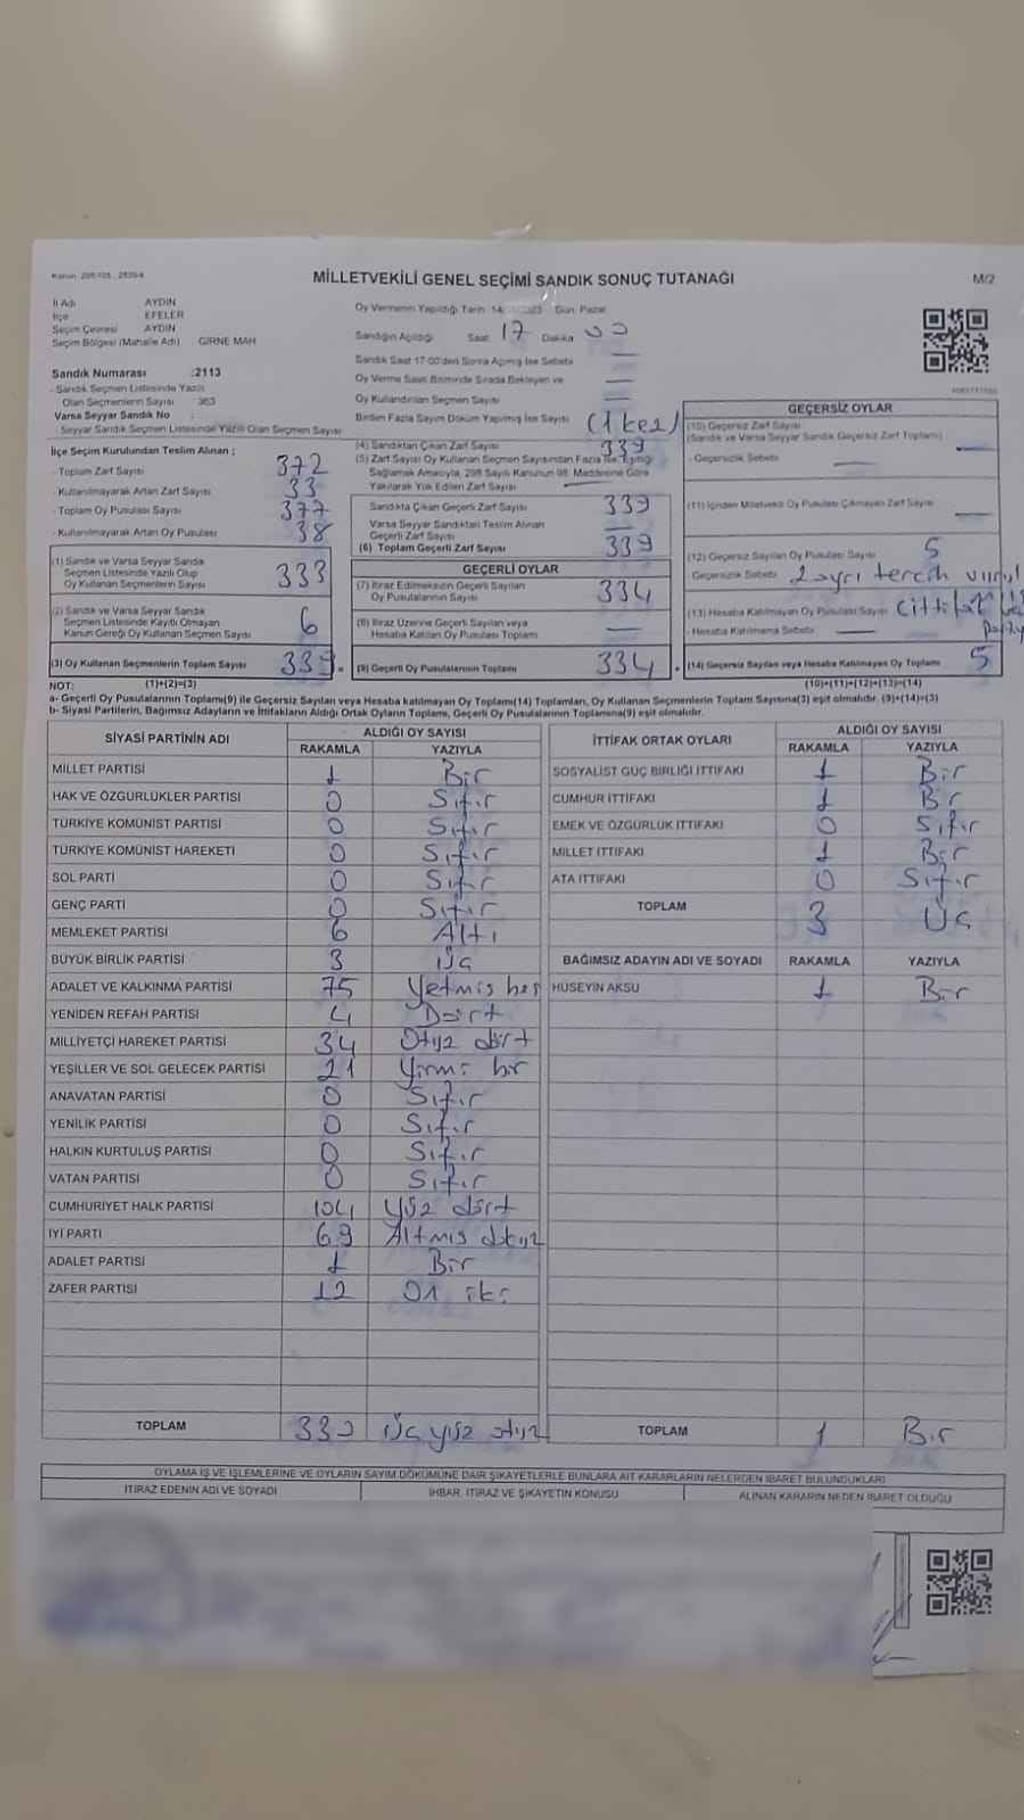 MİLLETVEKİLİ GENEL SEÇİMİ SANDIK SONUÇ TUTANAĞI
M/2
İl Adı AYDIN
İlçe EFELER
Seçim Çevresi AYDIN
Seçim Bölgesi (Mahalle Adı) GİRNE MAH
Sandık Numarası :2113
- Sandık Seçmen Listesinde Yazılı
Olan Seçmenlerin Sayısı 363
Varsa Seyyar Sandık No
- Seyyar Sandık Seçmen Listesinde Yazılı Olan Seçmen Sayısı
Oy Vermenin Yapıldığı Tarih 14 Gün Pazar
Sandığın Açıldığı Saat 17 Dakika 00
Sandık Saat 17:00'den Sonra Açılmış İse Sebebi —
Oy Verme Saati Bitiminde Sırada Bekleyen ve —
Oy Kullandırılan Seçmen Sayısı —
Birden Fazla Sayım Döküm Yapılmış İse Sayısı (1 kez)
İlçe Seçim Kurulundan Teslim Alınan ;
- Toplam Zarf Sayısı 372
- Kullanılmayarak Artan Zarf Sayısı 33
- Toplam Oy Pusulası Sayısı 377
- Kullanılmayarak Artan Oy Pusulası 38
(1) Sandık ve Varsa Seyyar Sandık
Seçmen Listesinde Yazılı Olup
Oy Kullanan Seçmenlerin Sayısı 333
(2) Sandık ve Varsa Seyyar Sandık
Seçmen Listesinde Kayıtlı Olmayan
Kanun Gereği Oy Kullanan Seçmen Sayısı 6
(3) Oy Kullanan Seçmenlerin Toplam Sayısı 339
(1)+(2)=(3)
(4) Sandıktan Çıkan Zarf Sayısı 339
(5) Zarf Sayısı Oy Kullanan Seçmen Sayısından Fazla İse, Eşitliği
Sağlamak Amacıyla, 298 Sayılı Kanunun 98. Maddesine Göre
Yakılarak Yok Edilen Zarf Sayısı —
Sandıkta Çıkan Geçerli Zarf Sayısı 339
Varsa Seyyar Sandıktan Teslim Alınan
Geçerli Zarf Sayısı —
(6) Toplam Geçerli Zarf Sayısı 339
GEÇERLİ OYLAR
(7) İtiraz Edilmeksizin Geçerli Sayılan
Oy Pusulalarının Sayısı 334
(8) İtiraz Üzerine Geçerli Sayılan veya
Hesaba Katılan Oy Pusulası Toplamı —
(9) Geçerli Oy Pusulalarının Toplamı 334
GEÇERSİZ OYLAR
(10) Geçersiz Zarf Sayısı
(Sandık ve Varsa Seyyar Sandık Geçersiz Zarf Toplamı) —
- Geçersizlik Sebebi —
(11) İçinden Milletvekili Oy Pusulası Çıkmayan Zarf Sayısı —
(12) Geçersiz Sayılan Oy Pusulası Sayısı 5
Geçersizlik Sebebi 2 ayrı tercih
(13) Hesaba Katılmayan Oy Pusulası Sayısı
- Hesaba Katılmama Sebebi —
(14) Geçersiz Sayılan veya Hesaba Katılmayan Oy Toplamı 5
(10)+(11)+(12)+(13)=(14)
NOT:
a- Geçerli Oy Pusulalarının Toplamı(9) ile Geçersiz Sayılan veya Hesaba katılmayan Oy Toplamı(14) Toplamları, Oy Kullanan Seçmenlerin Toplam Sayısına(3) eşit olmalıdır. (9)+(14)=(3)
b- Siyasi Partilerin, Bağımsız Adayların ve İttifakların Aldığı Ortak Oyların Toplamı, Geçerli Oy Pusulalarının Toplamına(9) eşit olmalıdır.
SİYASİ PARTİNİN ADI ALDIĞI OY SAYISI
RAKAMLA YAZIYLA
MİLLET PARTİSİ 1 Bir
HAK VE ÖZGÜRLÜKLER PARTİSİ 0 Sıfır
TÜRKİYE KOMÜNİST PARTİSİ 0 Sıfır
TÜRKİYE KOMÜNİST HAREKETİ 0 Sıfır
SOL PARTİ 0 Sıfır
GENÇ PARTİ 0 Sıfır
MEMLEKET PARTİSİ 6 Altı
BÜYÜK BİRLİK PARTİSİ 3 Üç
ADALET VE KALKINMA PARTİSİ 75 Yetmiş beş
YENİDEN REFAH PARTİSİ 4 Dört
MİLLİYETÇİ HAREKET PARTİSİ 34 Otuz dört
YEŞİLLER VE SOL GELECEK PARTİSİ 21 Yirmi bir
ANAVATAN PARTİSİ 0 Sıfır
YENİLİK PARTİSİ 0 Sıfır
HALKIN KURTULUŞ PARTİSİ 0 Sıfır
VATAN PARTİSİ 0 Sıfır
CUMHURİYET HALK PARTİSİ 104 Yüz dört
İYİ PARTİ 69 Altmış dokuz
ADALET PARTİSİ 1 Bir
ZAFER PARTİSİ 12 On iki
TOPLAM 330 Üç yüz otuz
İTTİFAK ORTAK OYLARI ALDIĞI OY SAYISI
RAKAMLA YAZIYLA
SOSYALİST GÜÇ BİRLİĞİ İTTİFAKI 1 Bir
CUMHUR İTTİFAKI 1 Bir
EMEK VE ÖZGÜRLÜK İTTİFAKI 0 Sıfır
MİLLET İTTİFAKI 1 Bir
ATA İTTİFAKI 0 Sıfır
TOPLAM 3 Üç
BAĞIMSIZ ADAYIN ADI VE SOYADI RAKAMLA YAZIYLA
HÜSEYİN AKSU 1 Bir
TOPLAM 1 Bir
OYLAMA İŞ VE İŞLEMLERİNE VE OYLARIN SAYIM DÖKÜMÜNE DAİR ŞİKAYETLERLE BUNLARA AİT KARARLARIN NELERDEN İBARET BULUNDUKLARI
İTİRAZ EDENİN ADI VE SOYADI İHBAR, İTİRAZ VE ŞİKAYETİN KONUSU ALINAN KARARIN NEDEN İBARET OLDUĞU